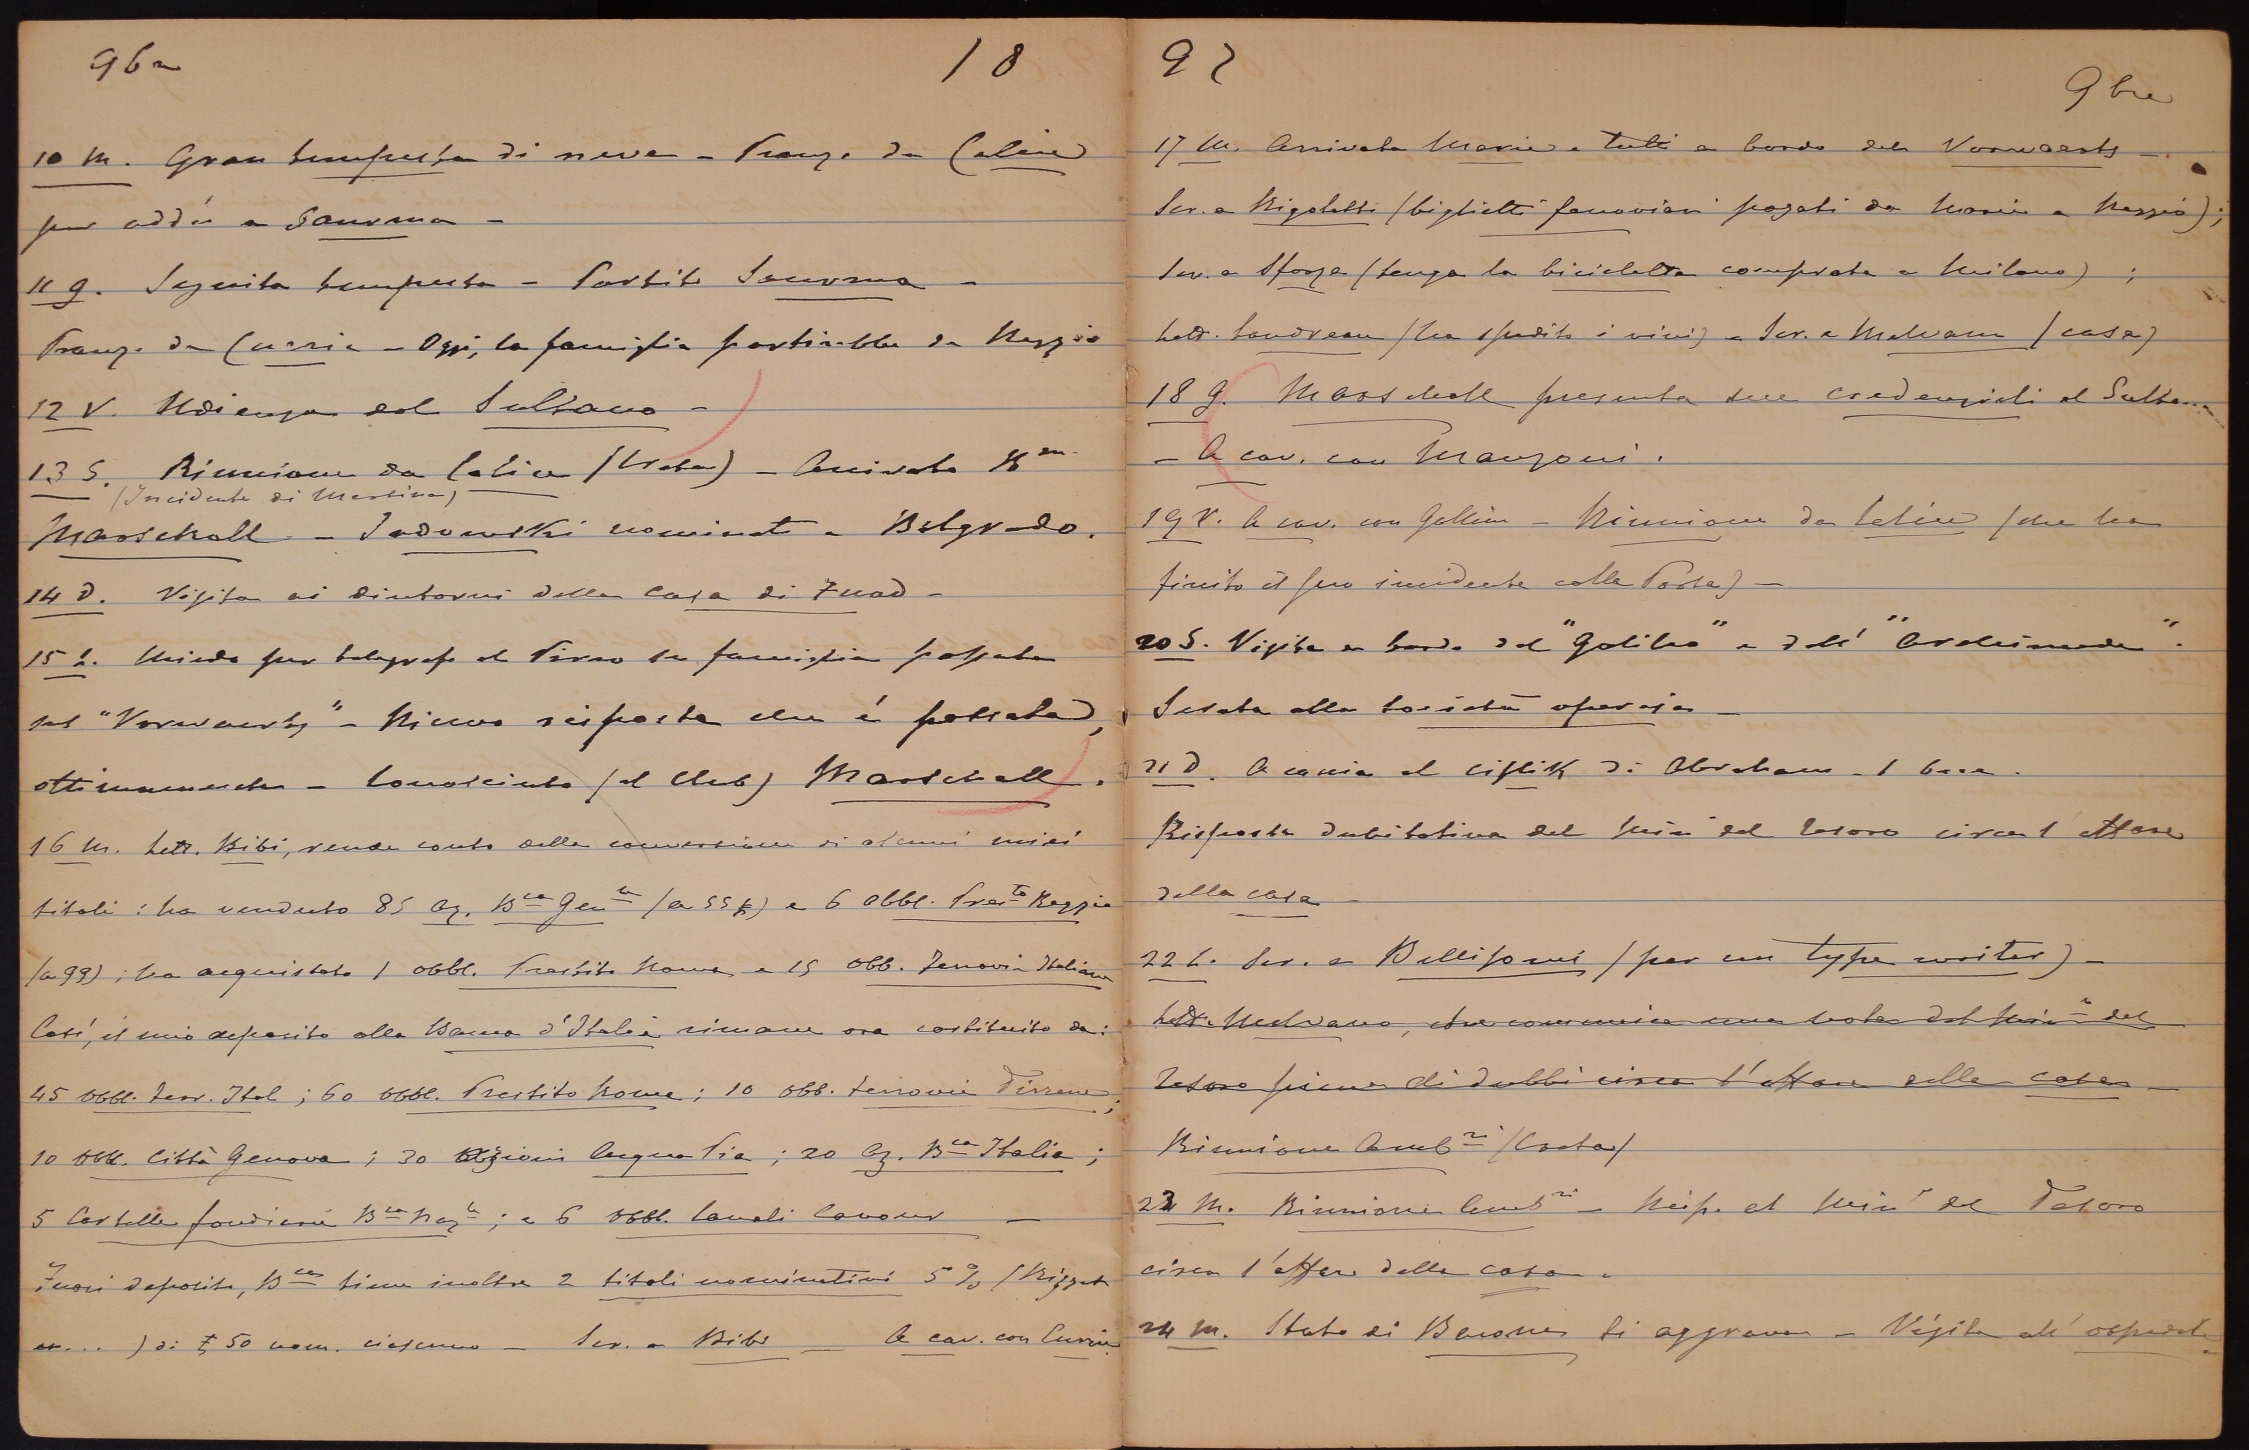 9bre 18
10 M. Gran tempesta di neve – Pranzo da Calice
per addio a Saurma –
11 G. Seguita tempesta – Partito Saurma –
Pranzo da Currie – Oggi, la famiglia partirebbe da Reggio
12 V. Udienza dal Sultano –
13 S. Riunione da Calice (Creta) – Arrivato Bon
(Incidente di Mersina)
Marschall – Sadowski nominato a Belgrado.
14 D. Visita ai dintorni della casa di Fuad –
15 L. Chiedo per telegrafo al Pireo se famiglia passata
sul "Vorwaerts" – Ricevo risposta che è passata,
ottimamente – Conosciuto (al Club) Marschall.
16 M. Lett. Bibi, rende conto della conversione di alcuni miei
titoli: ha venduto 85 az. Bca Genle (a 55 ) e 6 obbl. Presto Reggio
(a 99); ha acquistato 1 obbl. Prestito Roma e 15 obb. Ferrovie Italiane
Così, il mio deposito alla Banca d'Italia rimane ora costituito da:
45 obbl. Ferr. Ital; 60 obbl. Prestito Roma; 10 obb. Ferrovie Tirreno;
10 obbl. Città Genova; 30 azioni Acqua Pia; 20 az. Bca Italia;
5 Cartelle fondiarie Bca Nazle; e 6 obbl. Canali Cavour –
Fuori deposito, Bca tiene inoltre 2 titoli nominativi 5% (
...) di £ 50 nom. ciascuno – Scr. a Bibi – A cav. con Currie
97 9bre
17 M. Arrivata Maria e tutti a bordo del Vorwaerts –
Scr. a Rigoletti (biglietti ferroviari pagati da Maria a Reggio);
Scr. a Sforza (tenga la bicicletta comprata a Milano);
Lett. Landreau (ha spedito i vini) – Scr. a Malvano (casa)
18 G. Marschall presenta sue credenziali al Sultano
– A cav. con Manzoni.
19 V. A cav. con Gallina – Riunione da Calice (che ha
finito il suo incidente colla Porta) –
20 S. Visita a bordo del "Galileo" e dell' "Archimede".
Serata alla Società operaia –
21 D. A caccia al ciftlik di Abraham – 1 becc.
Risposta dubitativa del Min° del Tesoro circa l'affare
della casa –
22 L. Scr. a Bellisomi (per un type writer) –
Lett. Malvano, che comunica una nota del Minro del
Tesoro piena di dubbi circa l'affare della casa –
Riunione Ambri (Creta)
23 M. Riunione Ambri – Risp. al Min° del Tesoro
circa l'affare della casa.
24 M. Stato di Barone si aggrava – Visita all'ospedale